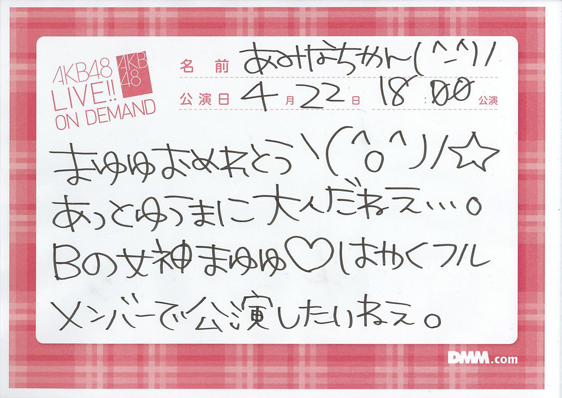 AKB48
LIVE!!
ON DEMAND
AKB
48
名前 あみなちゃん(^-^)/
公演日 4月22日 18:00公演
まゆゆおめれとう\(^o^)/☆
あっとゆうまに大人だねえ…。
Bの女神まゆゆ♡はやくフル
メンバーで公演したいねぇ。
DMM.com